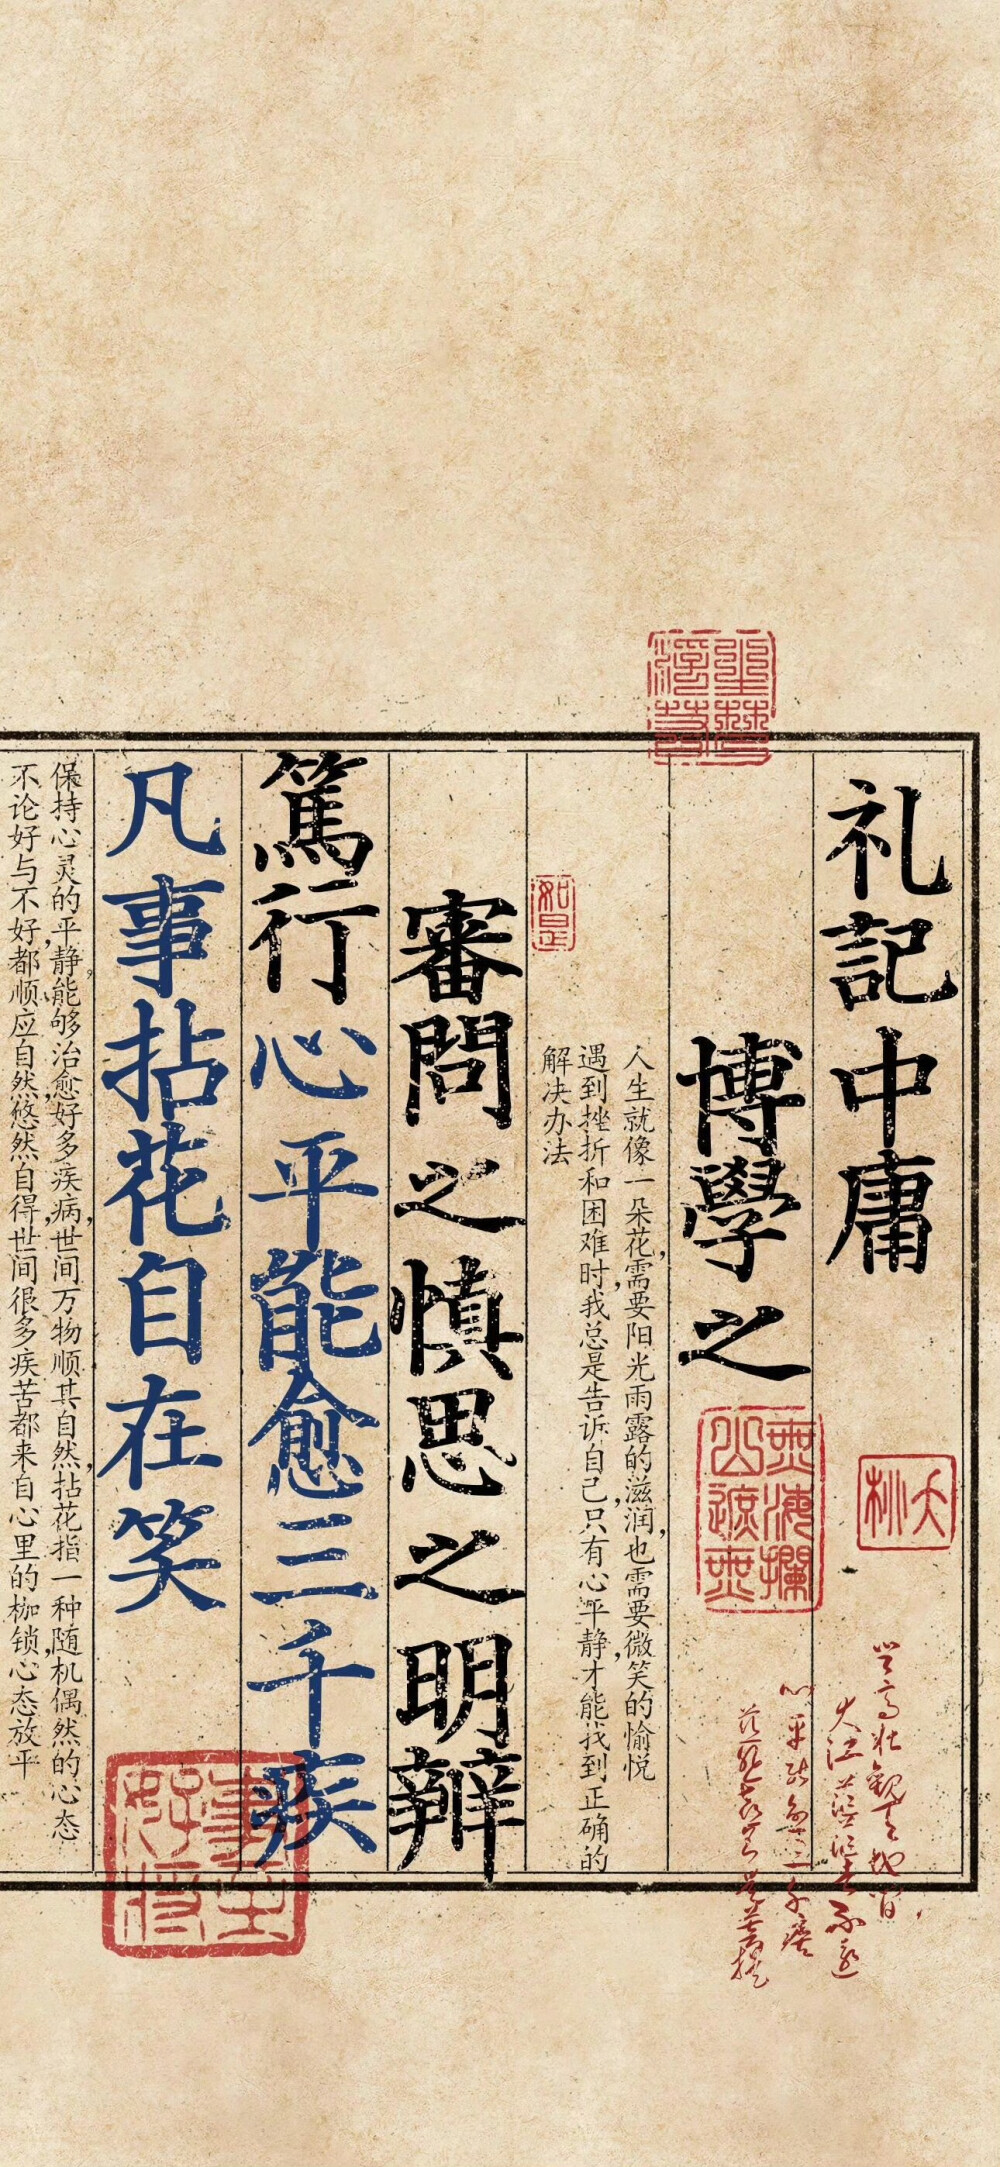 礼記中庸
博學之
人生就像一朵花,需要阳光雨露的滋润,也需要微笑的愉悦
遇到挫折和困难时,我总是告诉自己,只有心平静,才能找到正确的
解决办法
如是
審問之慎思之明辦
篤行心平能愈三千疾
凡事拈花自在笑
保持心灵的平静,能够治愈好多疾病,世间万物顺其自然,拈花指一种随机偶然的心态
不论好与不好,都顺应自然,悠然自得,世间很多疾苦都来自心里的枷锁,心态放平
登高壮觀天地间
大江茫茫去不還
心平能愈三千疾